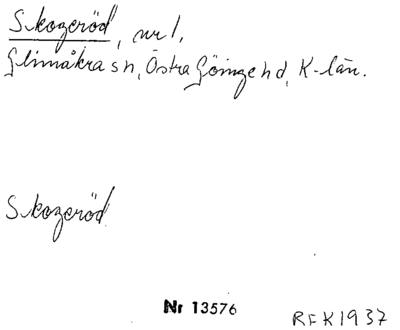 Skogeröd, nr 1,
Glimåkra sn, Östra Göinge hd, K-län.
Skogeröd
Nr 13576
REK1937